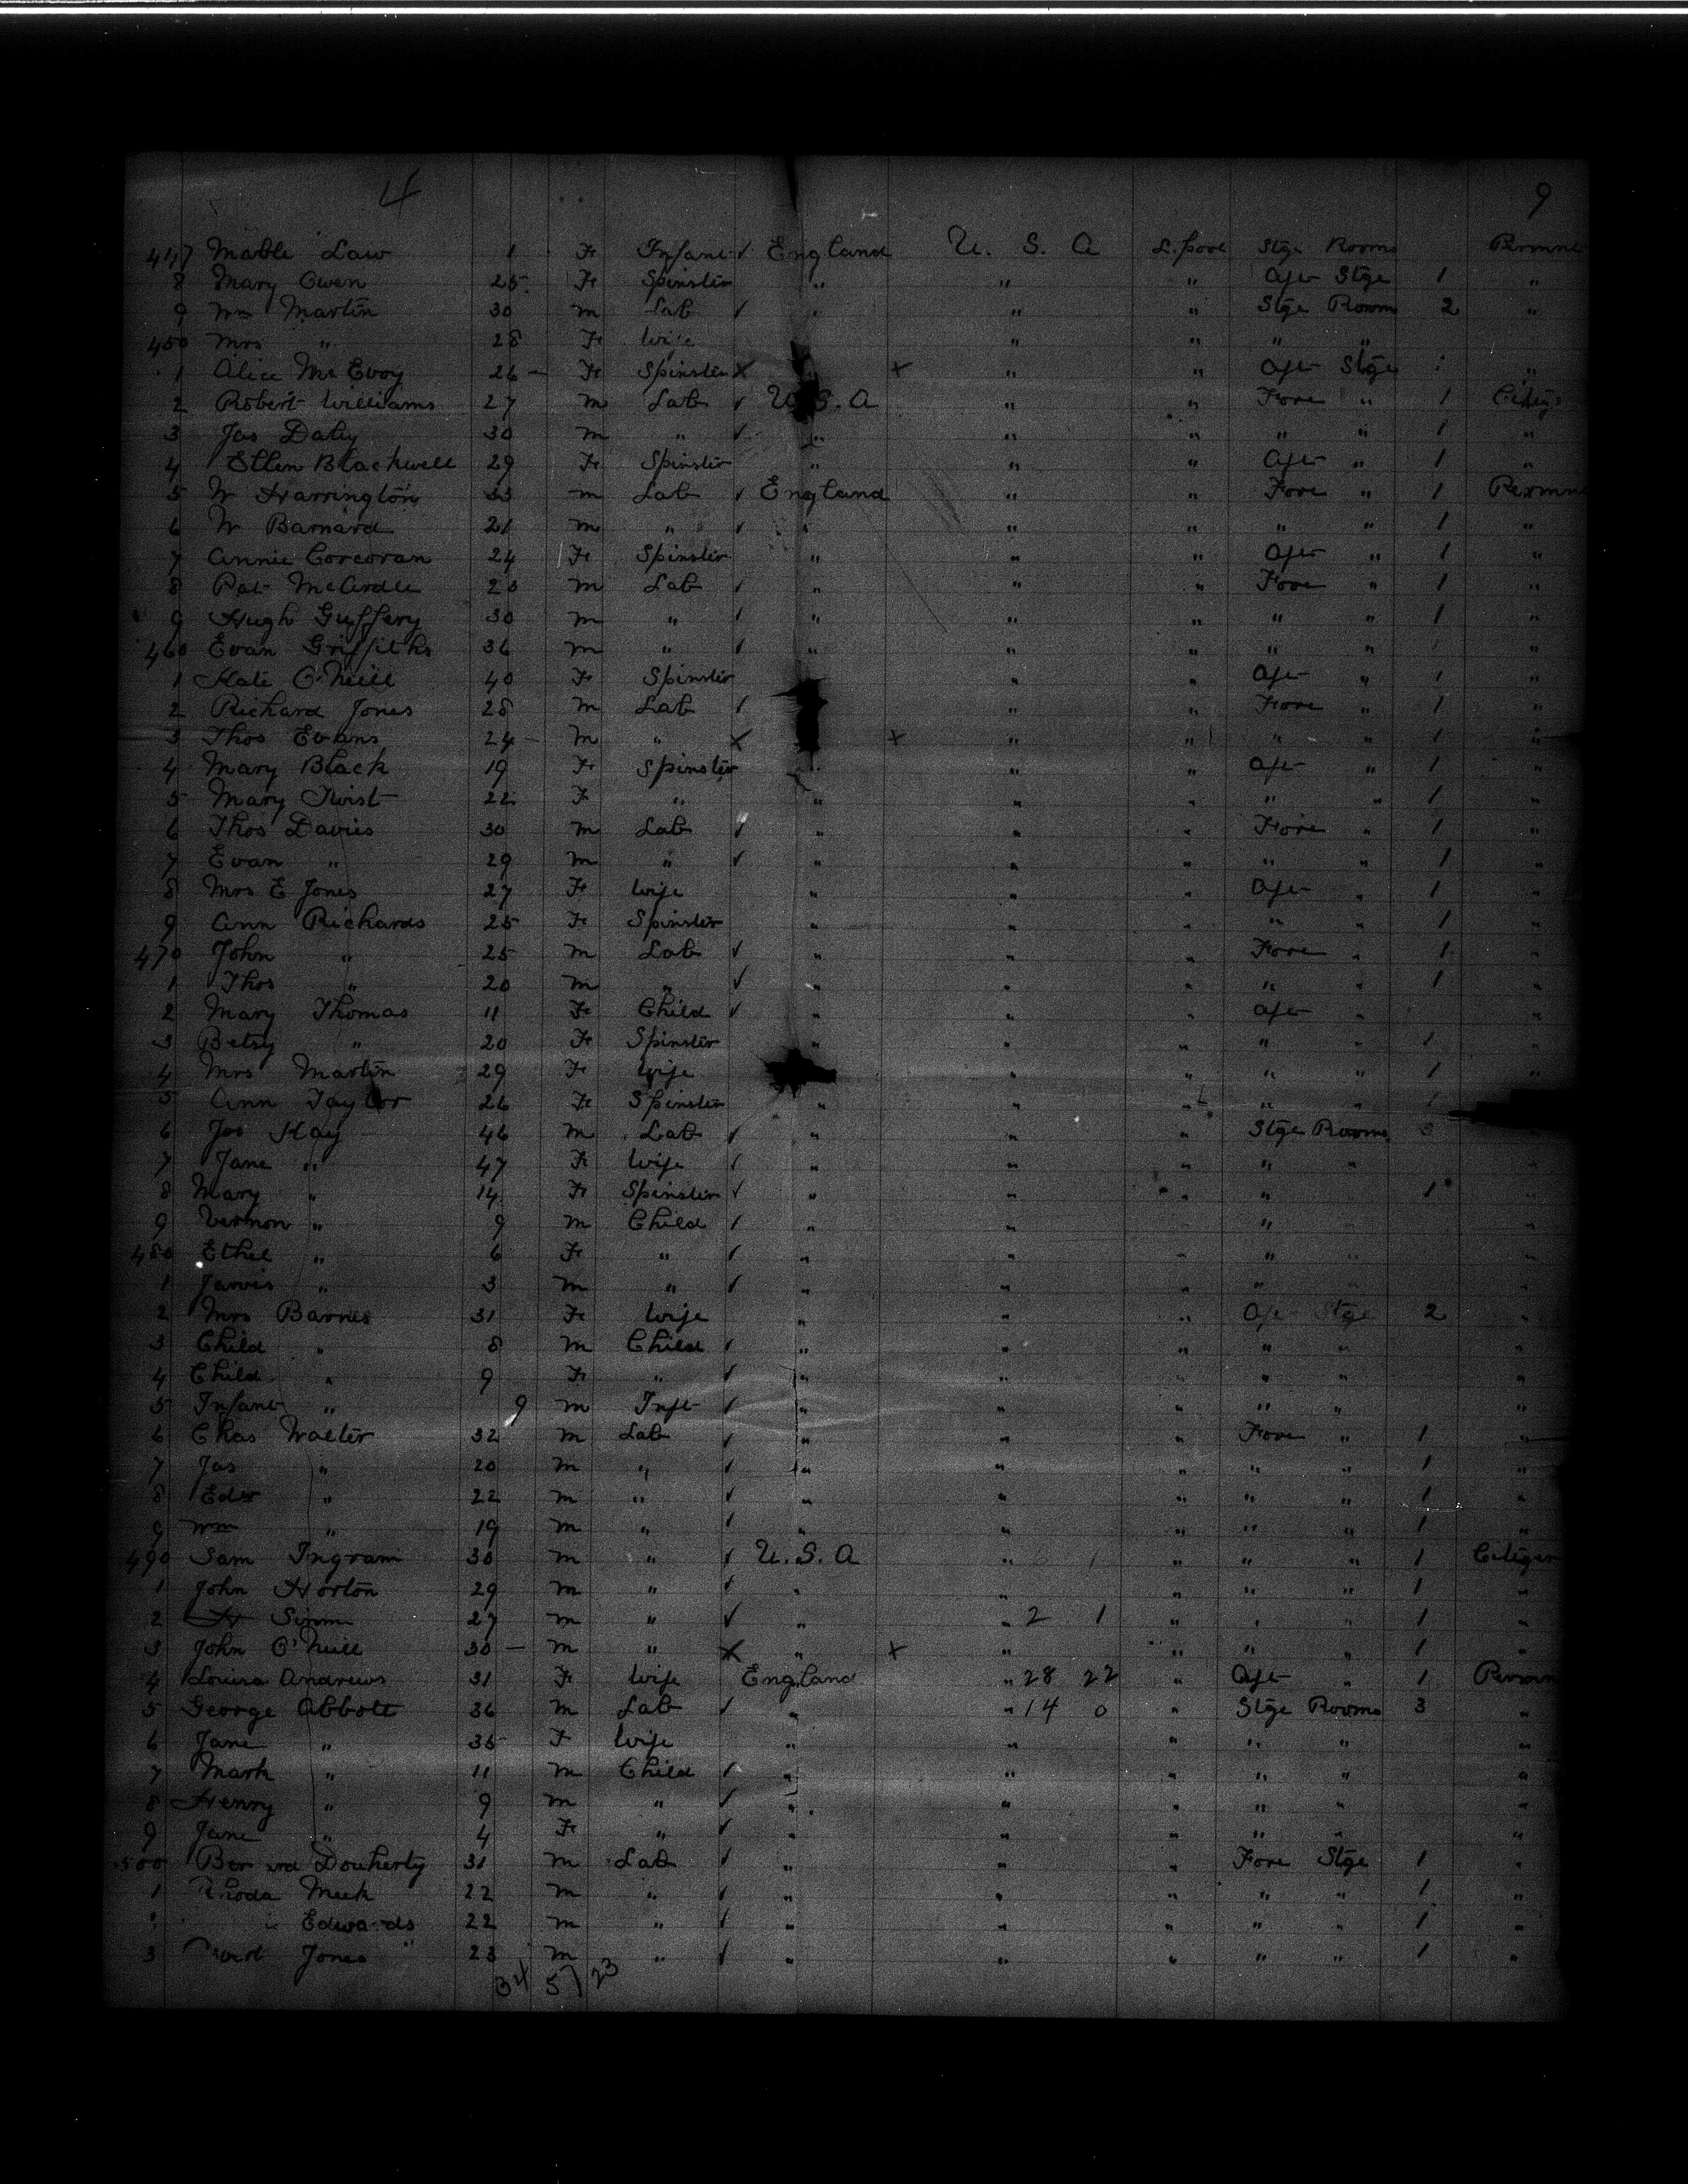 4 9
447 Mable Law 1 Fe Infant ✓ England U. S. A L.pool Stge Rooms Permne
8 Mary Owen 25 Fe Spinster " " " After Stge 1 "
9 Wm Martin 30 m Lab ✓ " " " Stge Rooms 2 "
450 Mrs " 28 Fe Wife " " " "
1 Alice McEvoy 26 – Fe Spinster X " + " " Aft Stge "
2 Robert Williams 27 m Lab ✓ U.S.A " " Fore " 1
3 Jas Daly 30 m " ✓ " " " " " 1 "
4 Ellen Blackwell 29 Fe Spinster " " " Aft " 1 "
5 W Harrington 33 m Lab ✓ England " " Fore " 1 Permne
6 W Barnard 21 m " ✓ " " " " " 1 "
7 Annie Corcoran 24 Fe Spinster " " " Aft " 1 "
8 Pat McArdle 20 m Lab ✓ " " " Fore " 1 "
9 Hugh Guffery 30 m " ✓ " " " " " 1 "
460 Evan Griffiths 36 m " ✓ " " " " " "
1 Kate O'Neill 40 Fe Spinster " " Aft " 1 "
2 Richard Jones 28 m Lab ✓ " " Fore " 1 "
3 Thos Evans 24 – m " X + " " " " 1 "
4 Mary Black 19 Fe Spinster " " " Aft " 1 "
5 Mary Twist 22 Fe " " " " " " 1 "
6 Thos Davies 30 m Lab ✓ " " " Fore " 1 "
7 Evan " 29 m " ✓ " " " " " 1 "
8 Mrs E Jones 27 Fe Wife " " " Aft " 1 "
9 Ann Richards 25 Fe Spinster " " " " " 1 "
470 John " 25 m Lab ✓ " " " Fore " 1 "
1 Thos " 20 m " ✓ " " " " " 1 "
2 Mary Thomas 11 Fe Child ✓ " " " Aft " "
3 Betsy " 20 Fe Spinster " " " " " 1 "
4 Mrs Martin 29 Fe Wife " " " " 1 "
5 Ann Taylor 26 Fe Spinster " " " " " 1
6 Jos Kay 46 m Lab ✓ " " " Stge Rooms
7 Jane " 47 Fe Wife ✓ " " " " " "
8 Mary " 14 Fe Spinster ✓ " " " " 1 "
9 Vernon " 9 m Child ✓ " " "
480 Ethel " 6 Fe " ✓ " " " " "
1 Jarvis " 3 m " ✓ " " " " "
2 Mrs Barnes 31 Fe Wife " " " Aft Stge 2 "
3 Child " 8 m Child ✓ " " " " " "
4 Child " 9 Fe " ✓ " " " " " "
5 Infant " 9 m Inft ✓ " " " " " "
6 Chas Walter 32 m Lab ✓ " " " Fore " 1 "
7 Jas " 20 m " ✓ " " " " " 1 "
8 Edw " 22 m " ✓ " " " " " 1 "
9 Wm " 19 m " ✓ " " " " " 1 "
490 Sam Ingram 30 m " ✓ U.S.A " " " " 1 Citizen
1 John Horton 29 m " ✓ " " " " 1 "
2 H Simm 27 m " ✓ " " 2 1 " " 1 "
3 John O'Neill 30 – m " X " + " " " 1 "
4 Louisa Andrews 31 Fe Wife England " 28 22 " Aft " 1 Permne
5 George Abbott 36 m Lab ✓ " " 14 0 " Stge Rooms 3 "
6 Jane " 35 Fe Wife " " " " " "
7 Mark " 11 m Child ✓ " " " " " "
8 Henry " 9 m " ✓ " " " " " "
9 Jane " 4 Fe " ✓ " " " " " "
500 Douherty 31 m Lab ✓ " " " Fore Stge 1 "
1 Rhoda Meek 22 m " ✓ " " " " " 1 "
Edwards 22 m " ✓ " " " " " 1 "
3 Jones 23 m " ✓ " " " " " 1 "
34 5 / 23